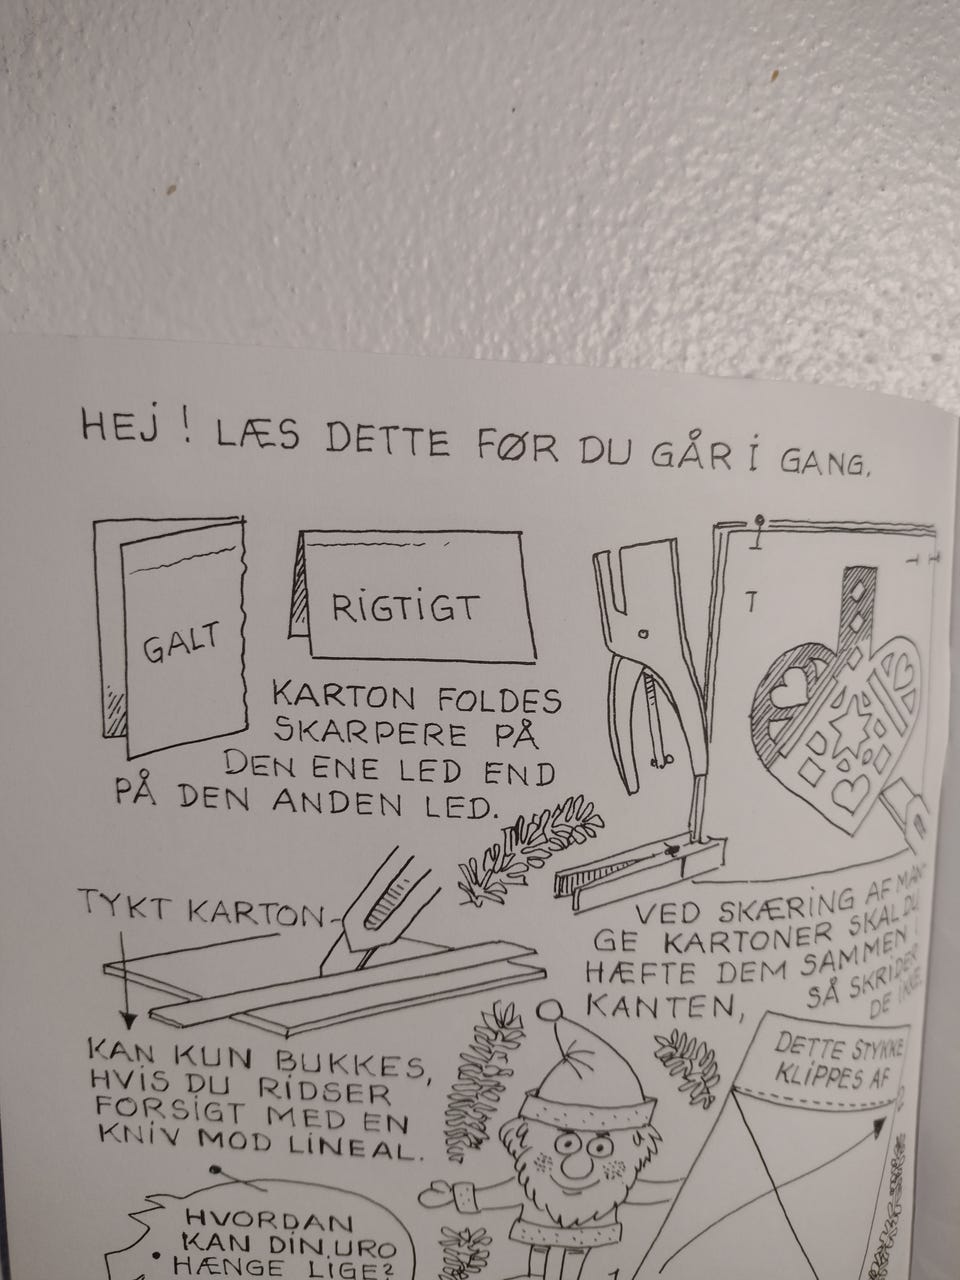 HEJ! LÆS DETTE FØR DU GÅR I GANG.
GALT
RIGTIGT
KARTON FOLDES
SKARPERE PÅ
DEN ENE LED END
PÅ DEN ANDEN LED.
TYKT KARTON
KAN KUN BUKKES,
HVIS DU RIDSER
FORSIGT MED EN
KNIV MOD LINEAL.
VED SKÆRING AF MAN-
GE KARTONER SKAL DU
HÆFTE DEM SAMMEN I
KANTEN, SÅ SKRIDER
DE IKKE.
DETTE STYKKE
KLIPPES AF
HVORDAN
KAN DIN URO
HÆNGE LIGE?